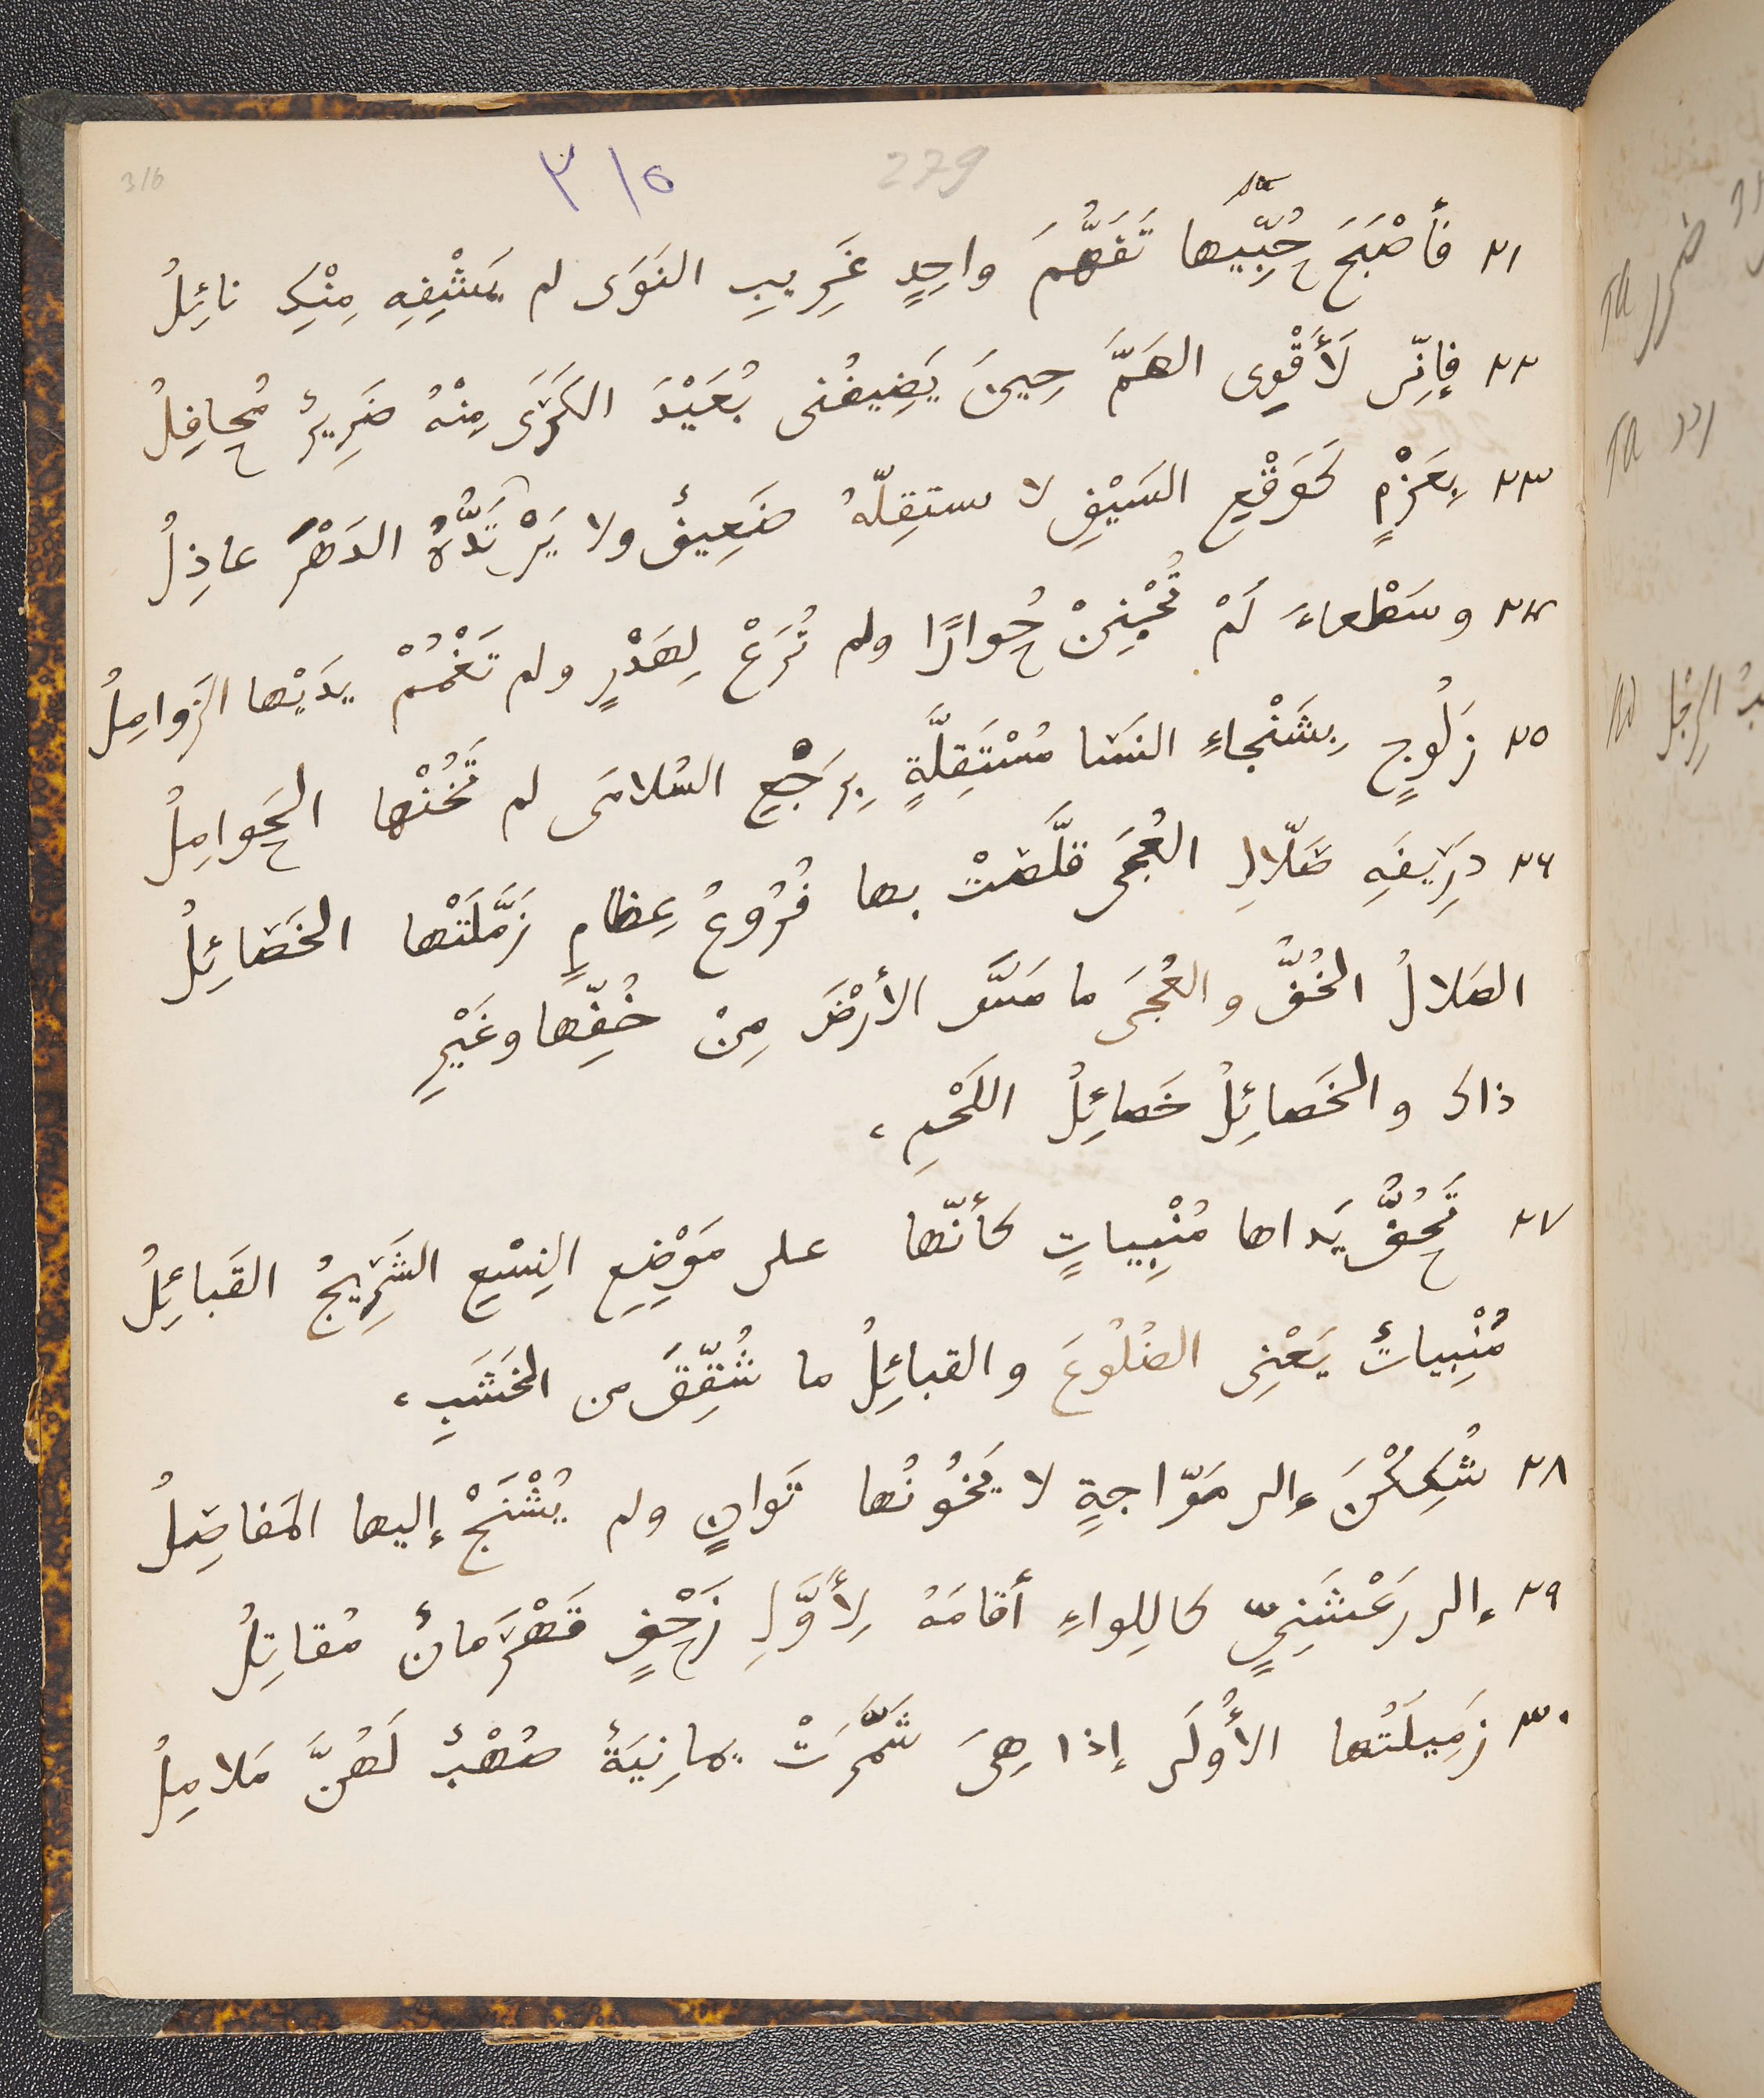 316
279
٣١٥
٢١ فأَصْبَحَ حُبِّيها تَفَهُّمَ واحِدٍ غَرِيبِ النَوَى لم يَشْفِهِ مِنْكِ نائِلُ
٢٢ فإنّى لَأَقْوِى الهَمَّ حِينَ يَضِيفُنى بُعَيْدَ الكَرَى مِنْهُ ضَرِيرٌ مُحافِلُ
٢٣ بِعَزْمٍ كَوَقْعِ السَيْفِ لا ستقِلّهُ ضَعِيفٌ ولا يَرْتَدُّهُ الدَهْرَ عاذِلُ
٢٤ وسَطْعاءَ لَمْ تُحْبِنْ حُوارًا ولم تُرَعْ لِهَدْرٍ ولم تَغْمُمْ يدَيْها الزوامِلُ
٢٥ زَلُوجٍ بِشَنْجاءِ النَسَا مُسْتَقِلَّةٍ بِرَجْعِ السُلامَى لم تَخُنْها الحَوامِلُ
٢٦ دِرِيفَهِ صَلّالِ العُجَى قلَّصَتْ بها فُرُوعُ عِظامٍ زَمَّلَتْها الخَصَائِلُ
الصَلالُ الخُفُّ والعُجَى ما مَسَّ الأرْضَ مِنْ خُفِّها وغَيْرِ
ذاك والخَصائِلُ خَصائِلُ اللَحْمِ،
٢٧ تَحُفُّ يَداها مُنْبِياتٍ كأنّها على مَوْضِعِ النِسْعِ الشَرِيجُ القَبائِلُ
مُنْبِياتٌ يَعْنِى الضُلُوعَ والقبائِلُ ما شُقِّقَ من الخَشَبِ،
٢٨ شُكِكْنَ إلى مَوّاجةٍ لا يَخُونُها تَوانٍ ولم يُشْنَجْ إليها المَفاصِلُ
٢٩ إلى رَعْشَنِىٍّ كاللِواءِ أقامَهُ لِأَوَّلِ زَحْفٍ قَهْرَمانٌ مُقاتِلُ
٣٠ زَمِيلَتُها الأُولَى إذا هِىَ شَمَّرَتْ يمانِيَةٌ صُهْبٌ لَهُنَّ مَلامِلُ